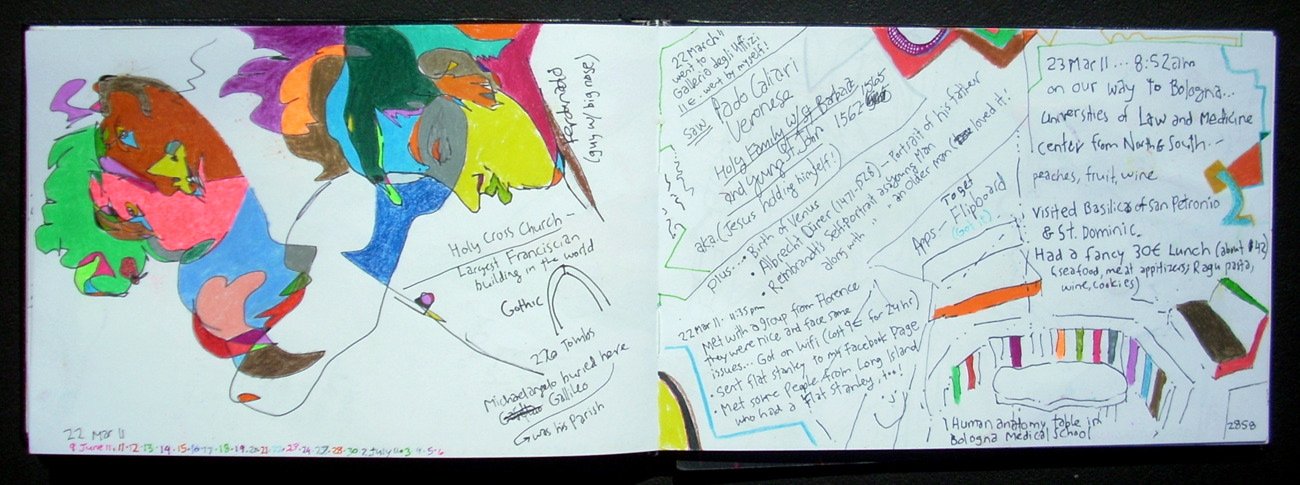 pteuchald
(guy w/ big nose)
Holy Cross Church -
Largest Franciscian
building in the world
Gothic
276 Tombs
Michaelangelo buried here
Gallileo
was his Parish
22 Mar 11
9 June 11, 11.12.13.14.15.16.17.18.19.20.21.22.23.24.27.28.30 2 July 11.3.4.5.6
22 March 11
went to
Galleria degli Uffizi
i.e. went by myself!
saw Paolo Caliari
Veronese
Holy Family w/ St. Barbara
and young St. John 1562
aka (Jesus holding himself!)
plus... • Birth of Venus
• Albrecht Dürer (1471-1528) - Portrait of his Father
• Rembrandt's Self Portrait as a Young Man
along with " " an Older man ( loved it!
Apps - To get
Flipboard
(Got it)
22 Mar 11 - 11:35 pm
Met with a group from Florence
they were nice and face some
issues... Got on wifi (cost 9€ for 24 hr)
• sent flat stanley to my Facebook Page
• Met some People from Long Island
who had a Flat Stanley, too!
23 Mar 11 ... 8:52 am
on our way to Bologna...
universties of Law and Medicine
center from North & South -
peaches, fruit, wine
visited Basilica of san Petronio
& St. Dominic.
Had a fancy 30€ Lunch (about $42)
(seafood, meat appitizers, Ragu pasta,
wine, cookies)
Human anatomy table in
Bologna Medical School
2858